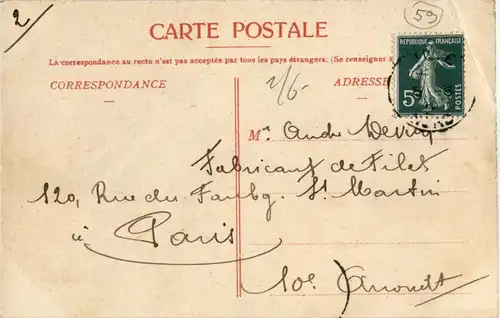 2
59
CARTE POSTALE
La correspondance au recto n'est pas acceptée par tous les pays étrangers. (Se renseigner à
CORRESPONDANCE
ADRESSE
REPUBLIQUE FRANÇAISE
5c
POSTES
2/6-
Mr Andre
Fabricant de Filet
120, Rue du Faubg. St Martin
à Paris
10e Arrondt